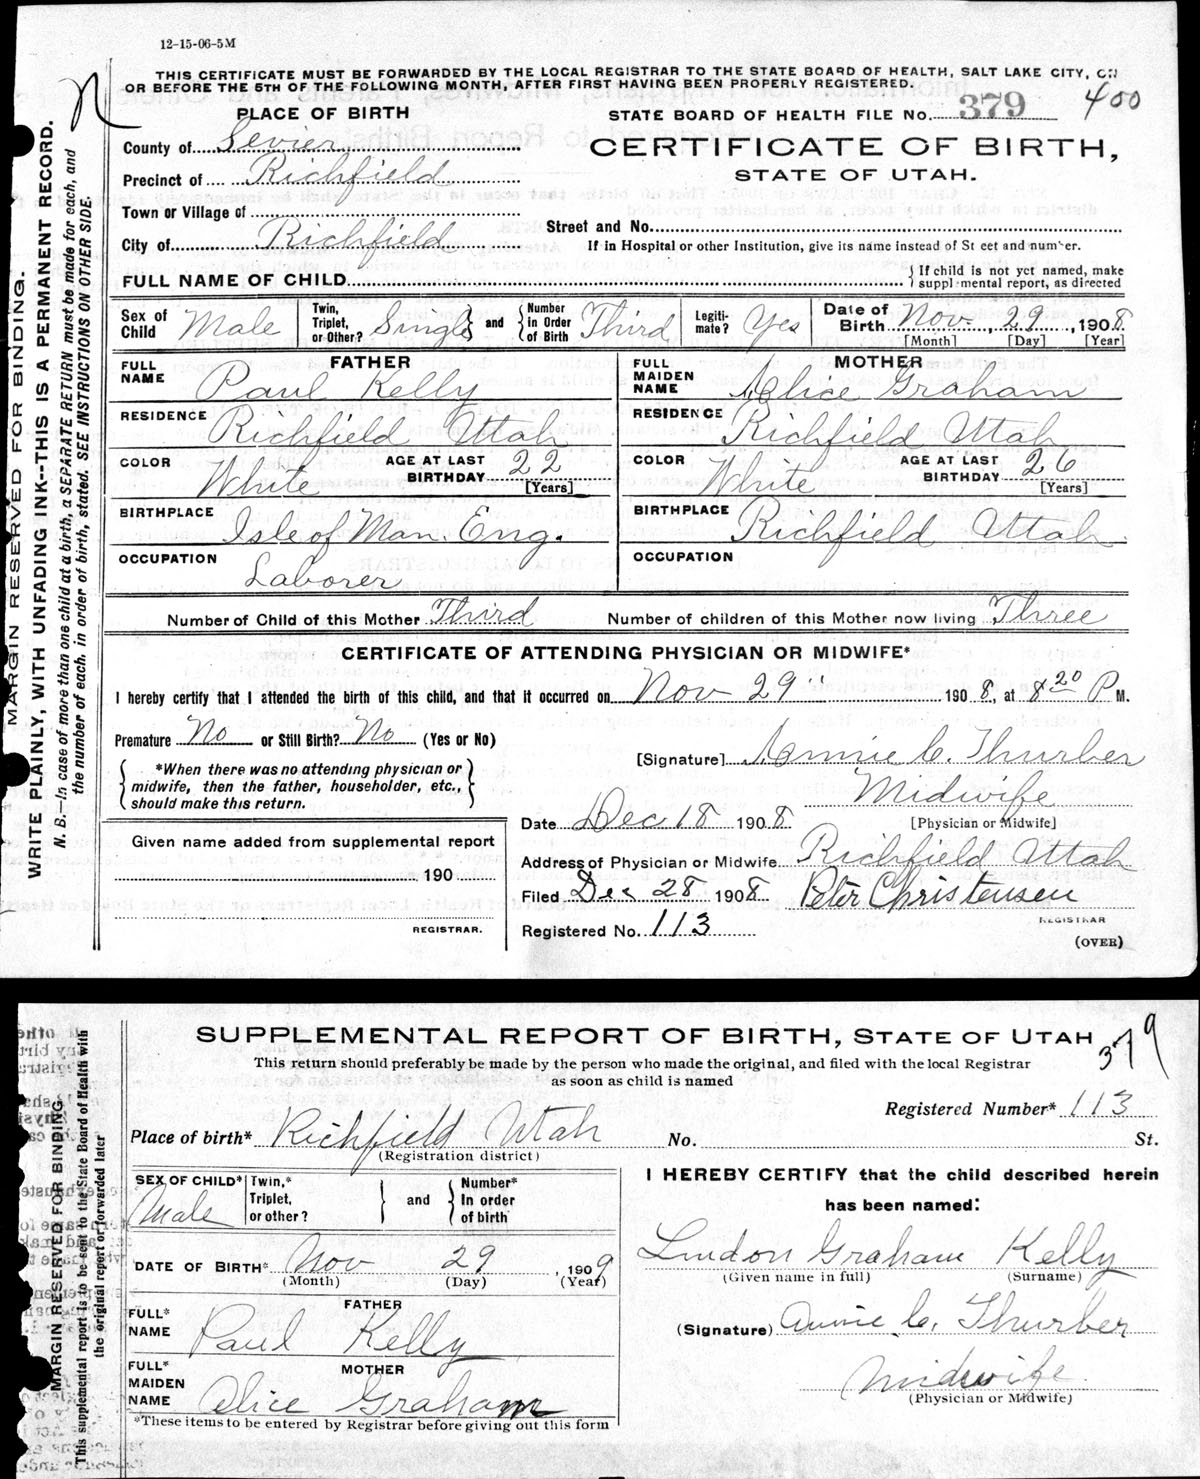 12-15-06-5M
THIS CERTIFICATE MUST BE FORWARDED BY THE LOCAL REGISTRAR TO THE STATE BOARD OF HEALTH, SALT LAKE CITY, ON
OR BEFORE THE 5TH OF THE FOLLOWING MONTH, AFTER FIRST HAVING BEEN PROPERLY REGISTERED.
PLACE OF BIRTH
STATE BOARD OF HEALTH FILE No. 379 400
County of Sevier
CERTIFICATE OF BIRTH,
Precinct of Richfield
STATE OF UTAH.
Town or Village of
Street and No.
City of Richfield
If in Hospital or other Institution, give its name instead of St eet and number.
FULL NAME OF CHILD
If child is not yet named, make
suppl mental report, as directed
Sex of Child Male
Twin, Triplet, or Other? Single and Number in Order of Birth Third
Legiti-mate? Yes
Date of Birth Nov. 29, 1908
[Month] [Day] [Year]
FATHER
FULL NAME Paul Kelly
RESIDENCE Richfield Utah
COLOR White AGE AT LAST BIRTHDAY 22 [Years]
BIRTHPLACE Isle of Man. Eng.
OCCUPATION Laborer
MOTHER
FULL MAIDEN NAME Alice Graham
RESIDENCE Richfield Utah
COLOR White AGE AT LAST BIRTHDAY 26 [Years]
BIRTHPLACE Richfield Utah
OCCUPATION
Number of Child of this Mother Third Number of children of this Mother now living Three
CERTIFICATE OF ATTENDING PHYSICIAN OR MIDWIFE*
I hereby certify that I attended the birth of this child, and that it occurred on Nov 29" 1908, at 8 20 P M.
Premature No or Still Birth? No (Yes or No)
[Signature] Annie C. Thurber
*When there was no attending physician or
midwife, then the father, householder, etc.,
should make this return.
Midwife
[Physician or Midwife]
Date Dec 18 1908
Given name added from supplemental report
190
REGISTRAR.
Address of Physician or Midwife Richfield Utah
Filed Dec 28 1908 Peter Christensen
REGISTRAR
Registered No. 113
(OVER)
MARGIN RESERVED FOR BINDING.
WRITE PLAINLY, WITH UNFADING INK--THIS IS A PERMANENT RECORD.
N. B.—In case of more than one child at a birth, a SEPARATE RETURN must be made for each, and
the number of each, in order of birth, stated. SEE INSTRUCTIONS ON OTHER SIDE.
SUPPLEMENTAL REPORT OF BIRTH, STATE OF UTAH 379
This return should preferably be made by the person who made the original, and filed with the local Registrar
as soon as child is named
Registered Number* 113
Place of birth* Richfield Utah No. St.
(Registration district)
SEX OF CHILD* Male
Twin,* Triplet, or other? and Number* In order of birth
DATE OF BIRTH* Nov 29, 1909
(Month) (Day) (Year)
FATHER
FULL* NAME Paul Kelly
MOTHER
FULL* MAIDEN NAME Alice Graham
*These items to be entered by Registrar before giving out this form
I HEREBY CERTIFY that the child described herein
has been named:
Lindon Graham Kelly
(Given name in full) (Surname)
(Signature) Annie C. Thurber
Midwife
(Physician or Midwife)
MARGIN RESERVED FOR BINDING.
This supplemental report is to be sent to the State Board of Health with
the original report or forwarded later